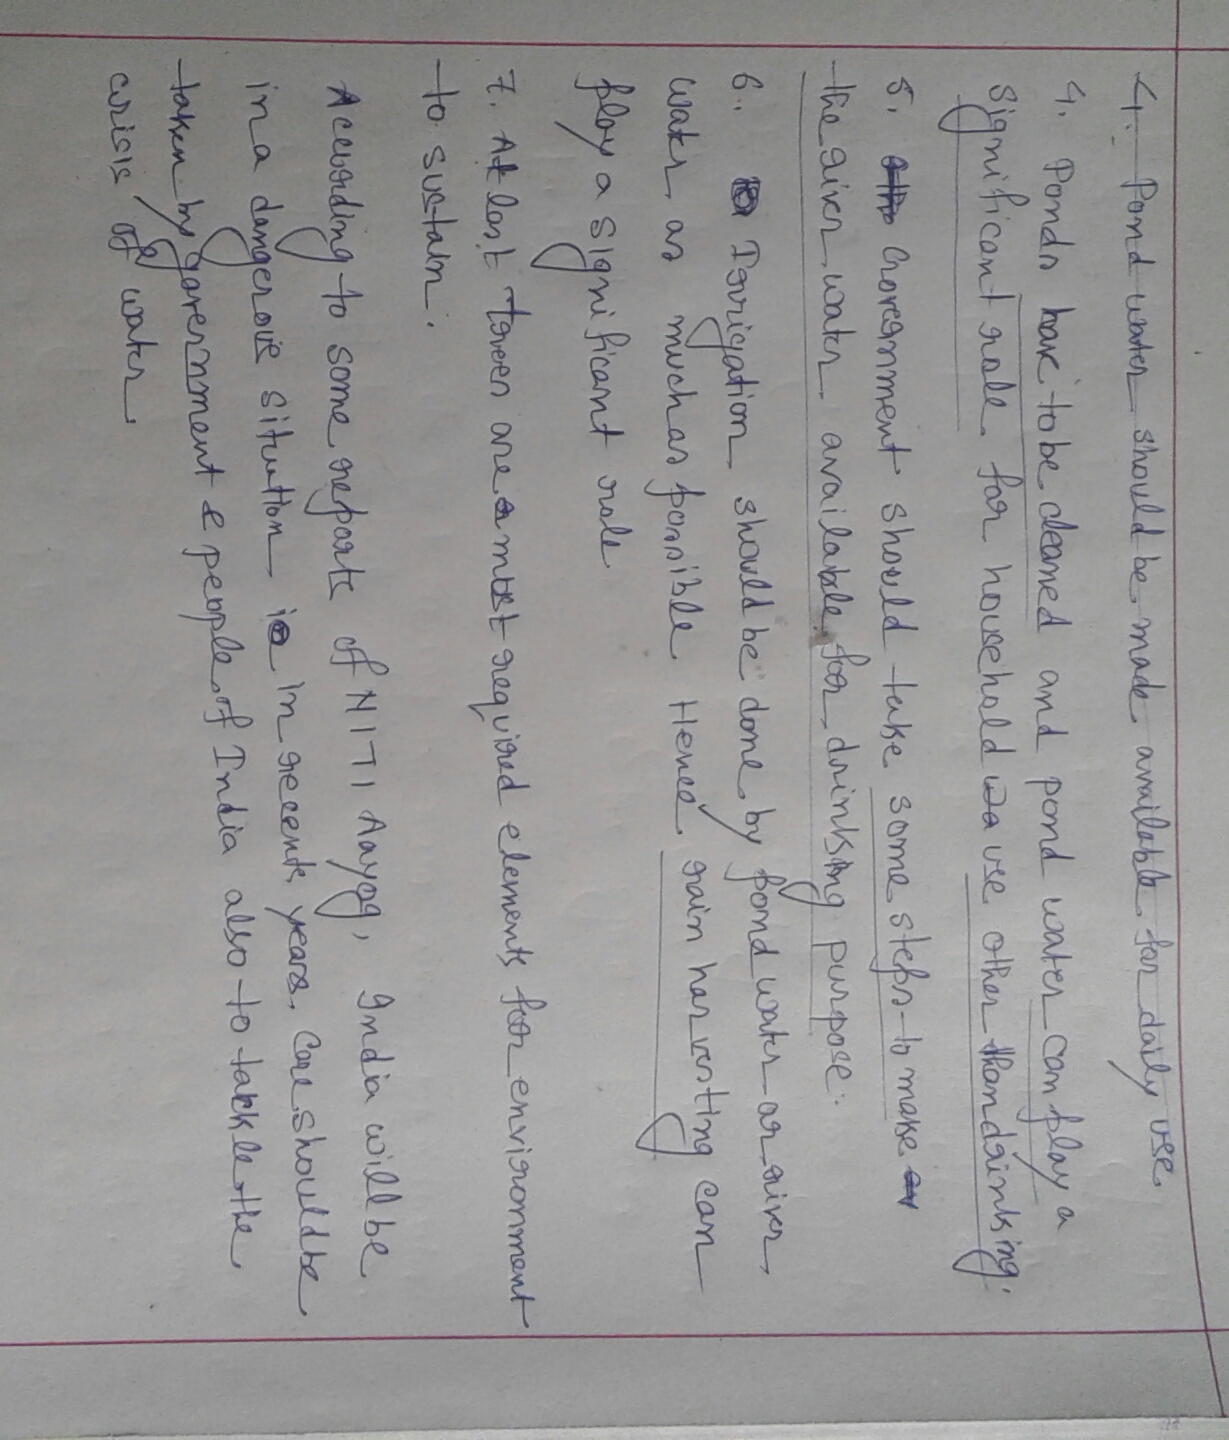 4. Pond water should be made available for daily use.
4. Ponds have to be cleaned and pond water can play a
significant role for household use other than drinking.
5. Government should take some steps to make
the river water available for drinking purpose.
6. Irrigation should be done by pond water or river
water as much as possible. Hence rain harvesting can
play a significant role
7. At last trees are most required elements for environment
to sustain.
According to some reports of NITI Aayog, India will be
in a dangerous situation in recent years. Care should be
taken by government & people of India also to tackle the
crisis of water.